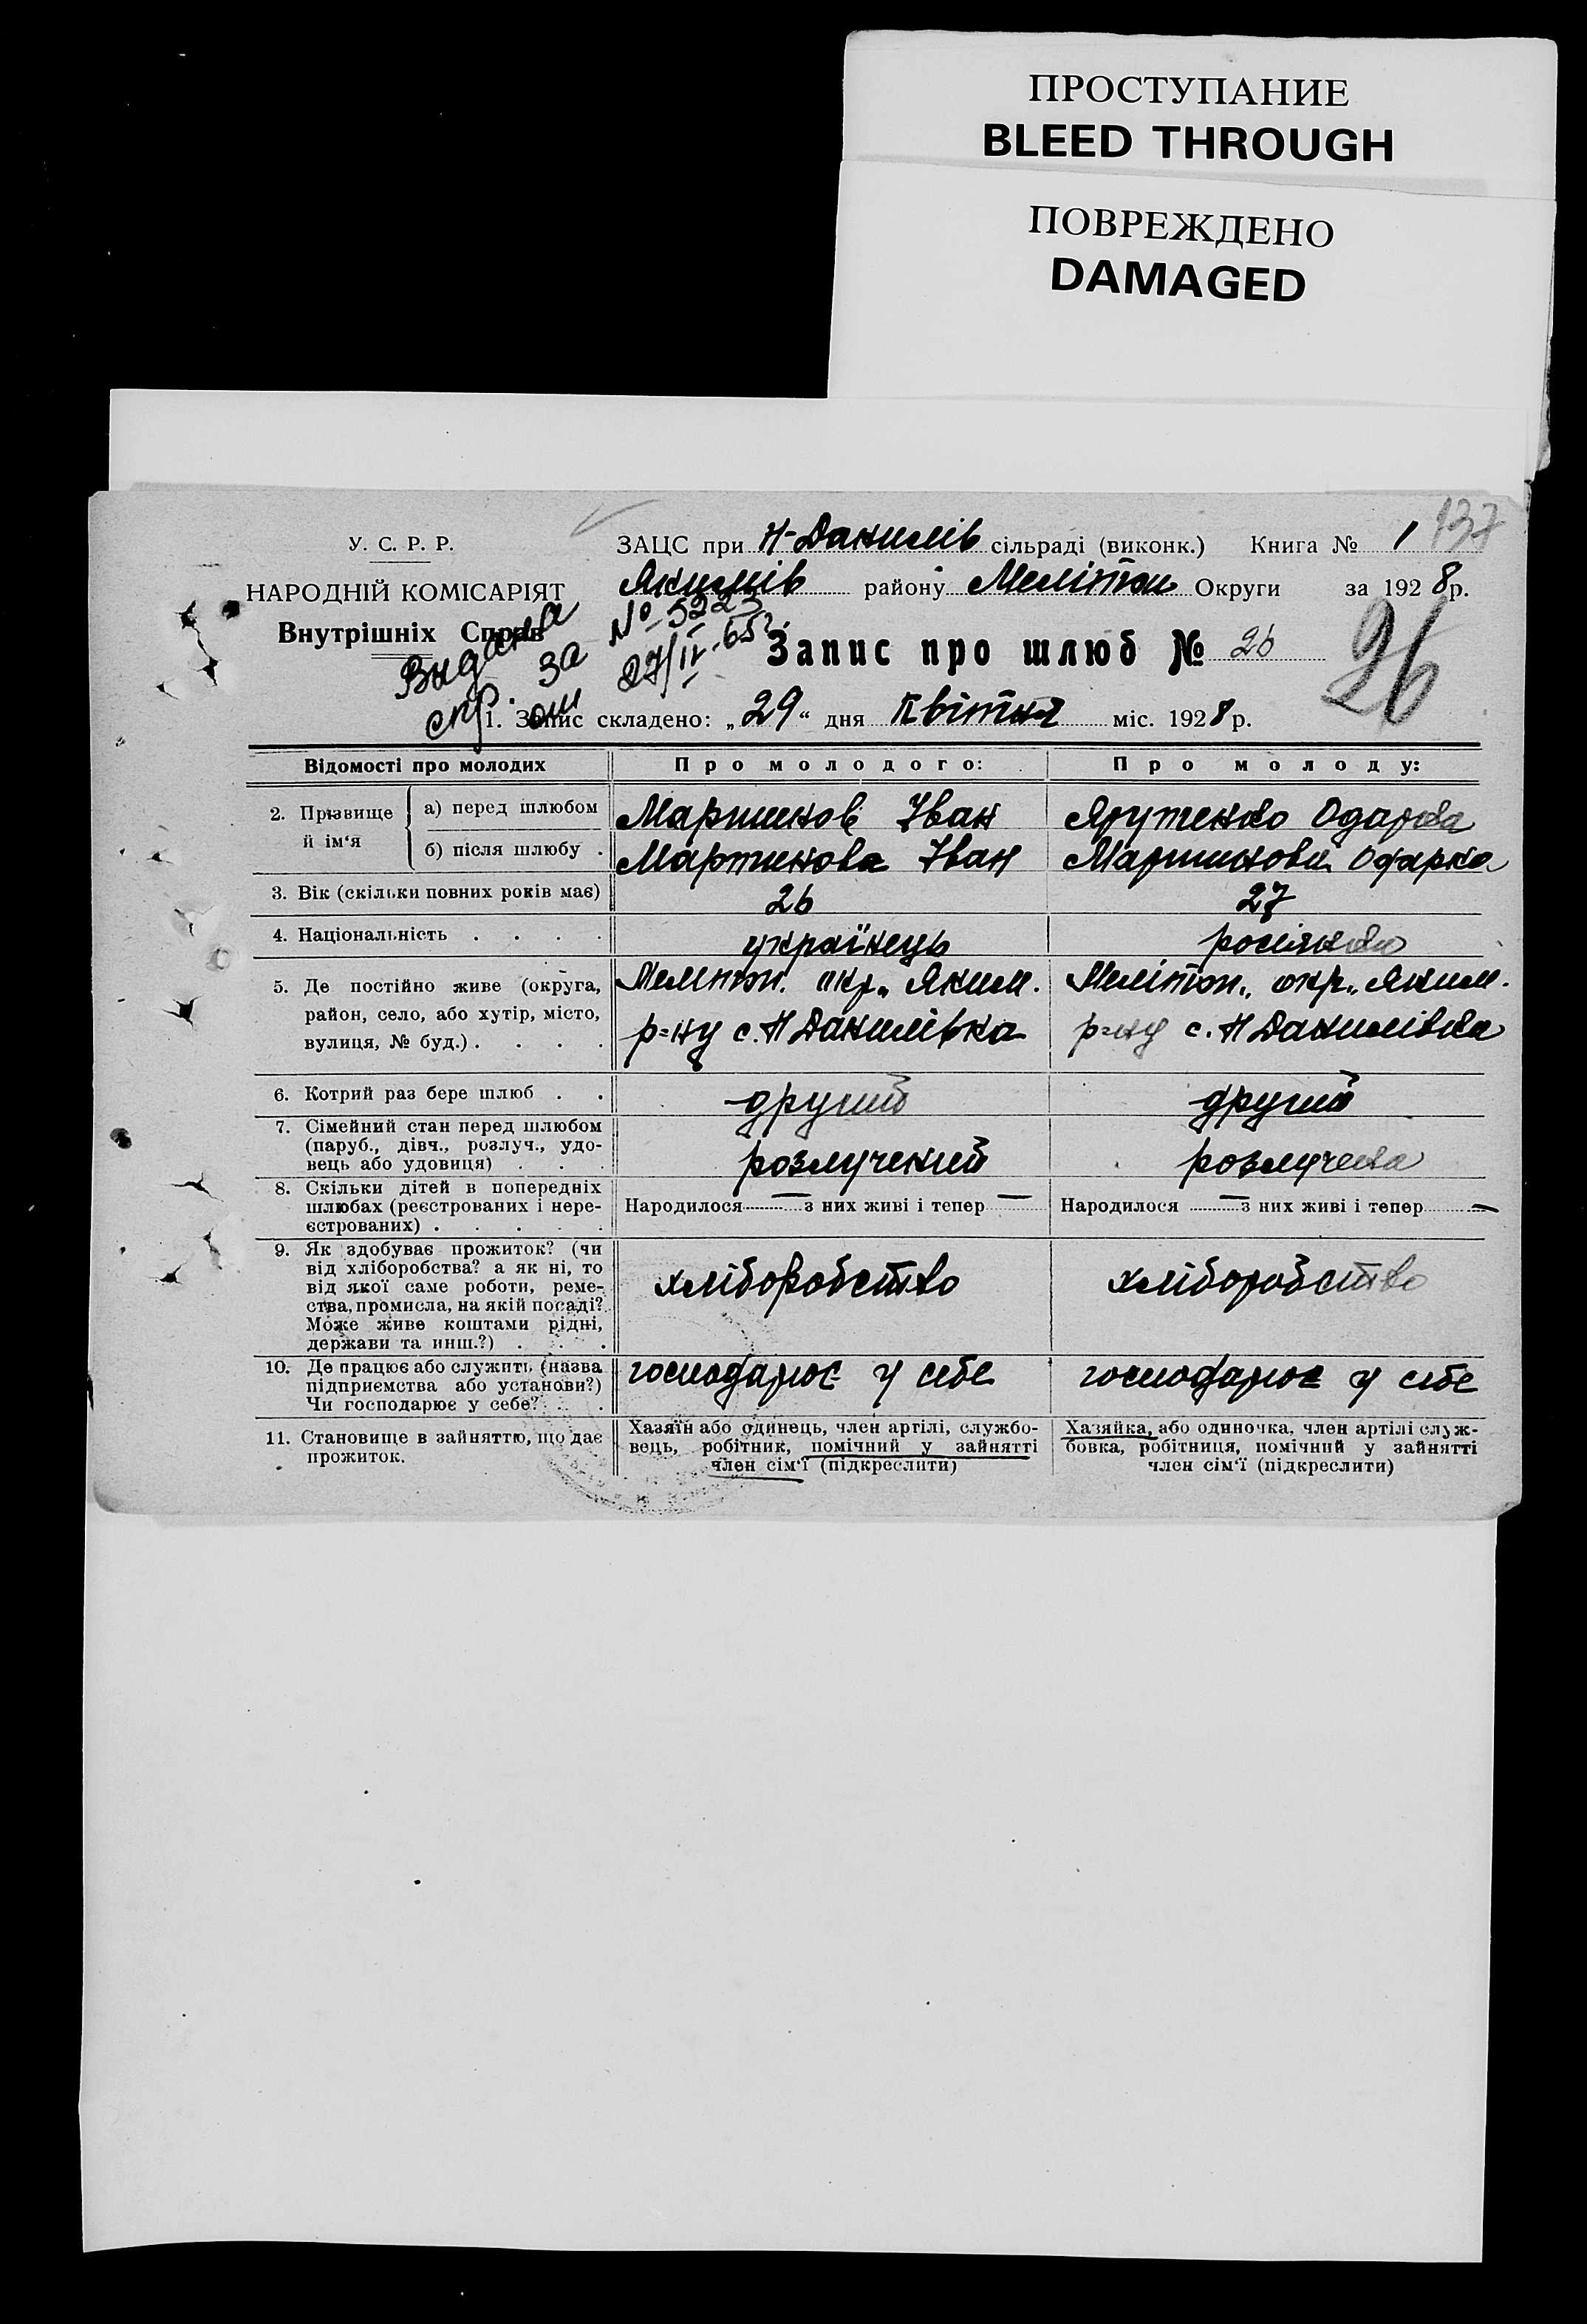 ПРОСТУПАНИЕ
BLEED THROUGH
ПОВРЕЖДЕНО
DAMAGED
137
У. С. Р. Р.
НАРОДНІЙ КОМІСАРІЯТ
Внутрішніх Справ
ЗАЦС при Н-Данилів сільраді (виконк.) Книга № 1
Якимів району Мелітоп Округи за 1928 р.
Выдана
спр. за
№ 5223
27/IV-65г.
Запис про шлюб № 26
26
1. Запис складено: „29“ дня Квітня міс. 1928 р.
Відомості про молодих
Про молодого:
Про молоду:
2. Прізвище й ім'я
а) перед шлюбом
Мартинов Іван
Одарка
б) після шлюбу .
Мартинова Іван
Мартинова Одарка
3. Вік (скільки повних років має)
26
27
4. Національність . . . .
українець
росіянка
5. Де постійно живе (округа,
район, село, або хутір, місто,
вулиця, № буд.) . . . .
Мелітоп. окр. Яким.
р=ну с. Н Данилівка
Мелітоп. окр. Яким.
р=ну с. Н Данилівка
6. Котрий раз бере шлюб . .
другий
другий
7. Сімейний стан перед шлюбом
(паруб., дівч., розлуч., удо-
вець або удовиця) . . .
розлучений
розлучена
8. Скільки дітей в попередніх
шлюбах (реєстрованих і нере-
єстрованих) . . . . .
Народилося — з них живі і тепер —
Народилося — з них живі і тепер —
9. Як здобуває прожиток? (чи
від хліборобства? а як ні, то
від якої саме роботи, реме-
ства, промисла, на якій посаді?
Може живе коштами рідні,
держави та инш.?) . . .
хліборобство
хліборобство
10. Де працює або служить (назва
підприємства або установи?)
Чи господарює у себе? . . .
господарює у себе
господарює у себе
11. Становище в зайняттю, що дає
прожиток.
Хазяїн або одинець, член артілі, службо-
вець, робітник, помічний у зайнятті
член сім'ї (підкреслити)
Хазяйка, або одиночка, член артілі служ-
бовка, робітниця, помічний у зайнятті
член сім'ї (підкреслити)